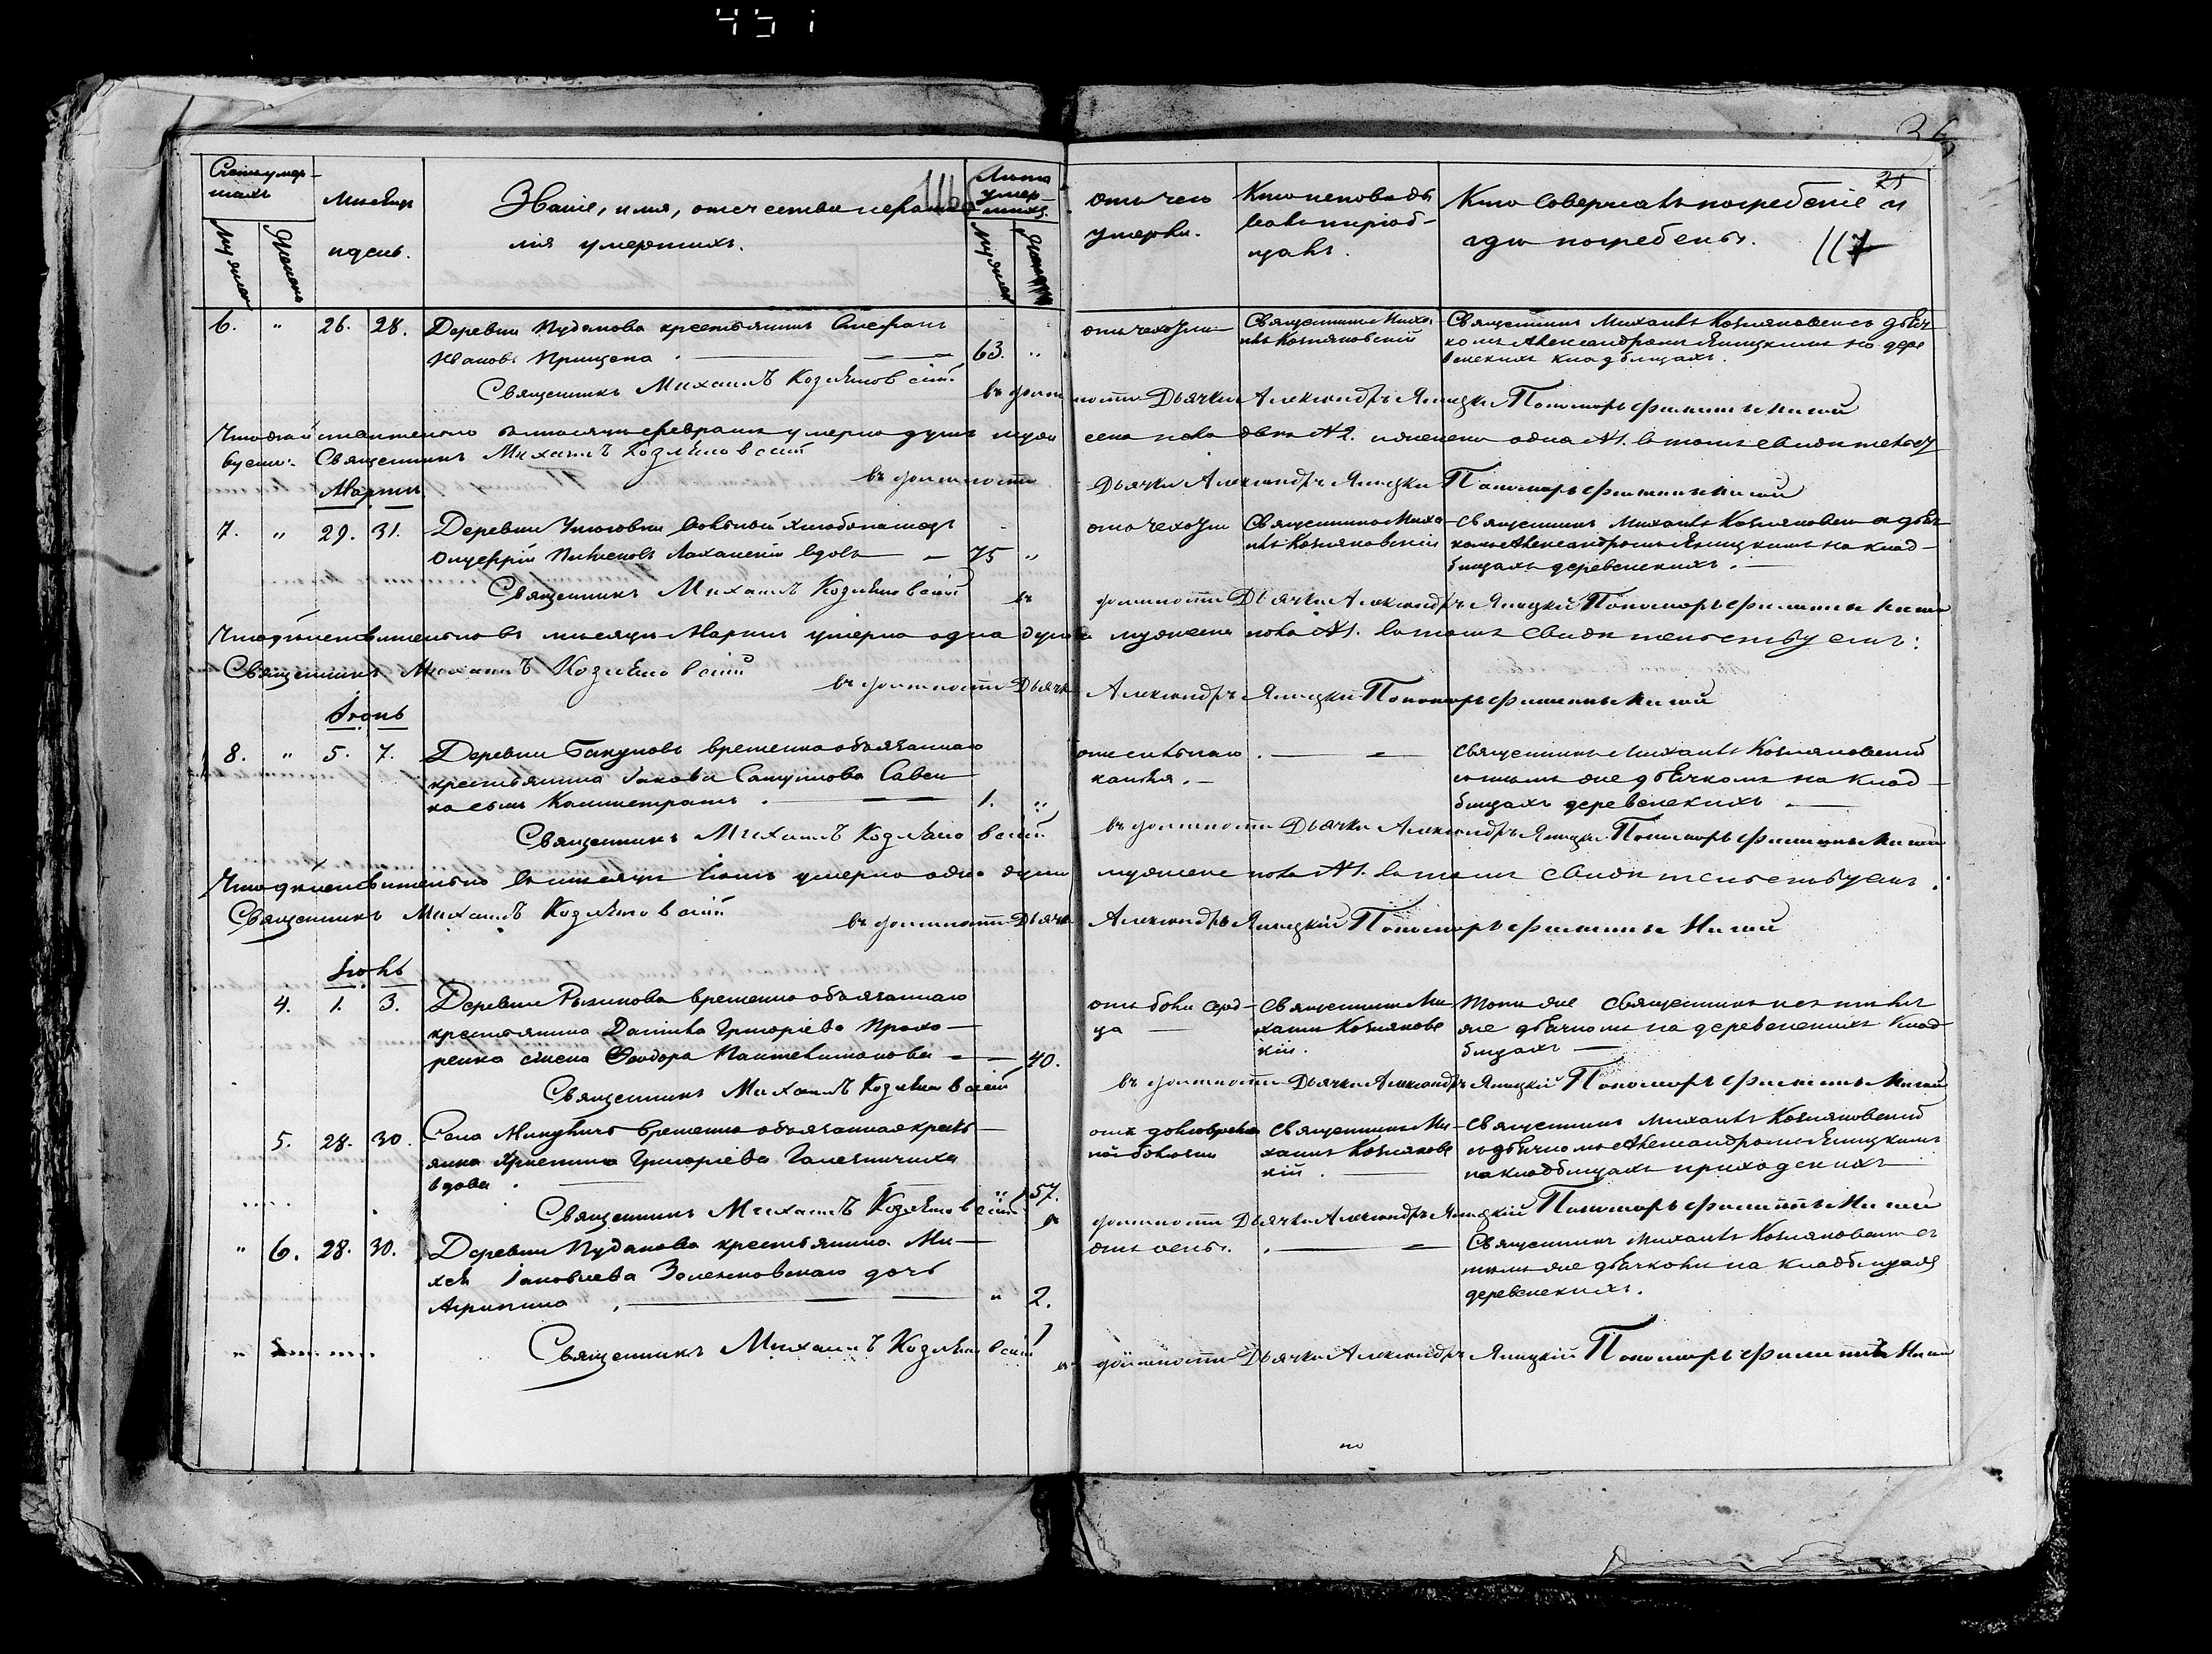 36
25
117
Счетъ умер-
шихъ
Мѣсяцъ
и день.
Званіе, имя, отчество и фами-
лія умершихъ.
Лѣта
умер
шихъ.
Мужеск
Женска
Мужеск
отъ чего
умерли.
Кто исповѣды
валъ и пріоб-
щалъ.
Кто совершалъ погребеніе и
гдѣ погребены.
6. " 26. 28. Деревни Пудановa крестьянинъ Стефанъ
Ивановъ Прищепа 63. "
отъ чехотки
Священникъ Миха
илъ Козляковскій
Священникъ Михаилъ Козляковск съ дьяч
комъ Александромъ Ялицкимъ на дере
венскихъ кладбищахъ.
Священникъ Михаилъ Козляковскій
въ должности Дьячка Александръ Ялицкій Пономарь Филиппъ
Что дѣйствительно въ мѣсяцѣ февралѣ умерло душъ муже
ска пола двѣ №2. и женска одна №1. въ томъ свидѣтельст
вуемъ: Священникъ Михаилъ Козляковскій
въ должности Дьячка Александръ Ялицкій Пономарь Филиппъ
Мартъ
7. " 29. 31. Деревни вольный хлѣбопашецъ
Онуфрій вдовъ — 75 "
отъ чехотки
Священникъ Миха
илъ Козляковскій
Священникъ Михаилъ Козляковск съ дьяч
комъ Александромъ Ялицкимъ на клад-
бищахъ деревенскихъ.
Священникъ Михаилъ Козляковскій
въ должности Дьячка Александръ Ялицкій Пономарь Филиппъ
Что дѣйствительно въ мѣсяцѣ Мартѣ умерла одна душа мужеска пола №1. въ томъ свидѣтельствуемъ:
Священникъ Михаилъ Козляковскій
въ должности Дьячка Александръ Ялицкій Пономарь Филиппъ
Іюнь
8. " 5. 7. Деревни временно обязаннаго
крестьянина Іакова Савен
ка сынъ 1. "
отъ сильнаго
кашля.
Священникъ Михаилъ Козляковскій
съ тѣмъ же дьячкомъ на клад-
бищахъ деревенскихъ
Священникъ Михаилъ Козляковскій
въ должности Дьячка Александръ Ялицкій Пономарь Филиппъ
Что дѣйствительно въ мѣсяцѣ Іюнѣ умерла одна душа мужеска пола №1. въ томъ свидѣтельствуемъ.
Священникъ Михаилъ Козляковскій
въ должности Дьячка Александръ Ялицкій Пономарь Филиппъ
Іюль
4. 1. 3. Деревни временно обязаннаго
крестьянина Даніила Григорьева Прохо-
ренка жена Ѳеодора Пантелимонова — 40.
отъ боли серд-
ца
Священникъ Ми
хаилъ Козляковс
кій.
Тотъ же священникъ и съ тѣмъ
же дьячкомъ на деревенскихъ клад
бищахъ
Священникъ Михаилъ Козляковскій
въ должности Дьячка Александръ Ялицкій Пономарь Филиппъ
5. 28. 30. Села Микуличъ временно обязанная кресть-
янка Христина Григорьева
вдова. " 57.
отъ долговремен
ной болѣзни
Священникъ Ми-
хаилъ Козляковс
кій
Священникъ Михаилъ Козляковскій
съ дьячкомъ Александромъ Ялицкимъ
на кладбищахъ приходскихъ
Священникъ Михаилъ Козляковскій
въ должности Дьячка Александръ Ялицкій Пономарь Филиппъ
" 6. 28. 30. Деревни Пудановa крестьянина Ми-
хея Іаковлева дочь
Агрипина " 2.
отъ оспы.
Священникъ Михаилъ Козляковск съ
тѣмъ же дьячкомъ на кладбищахъ
деревенскихъ.
Священникъ Михаилъ Козляковскій
въ должности Дьячка Александръ Ялицкій Пономарь Филиппъ